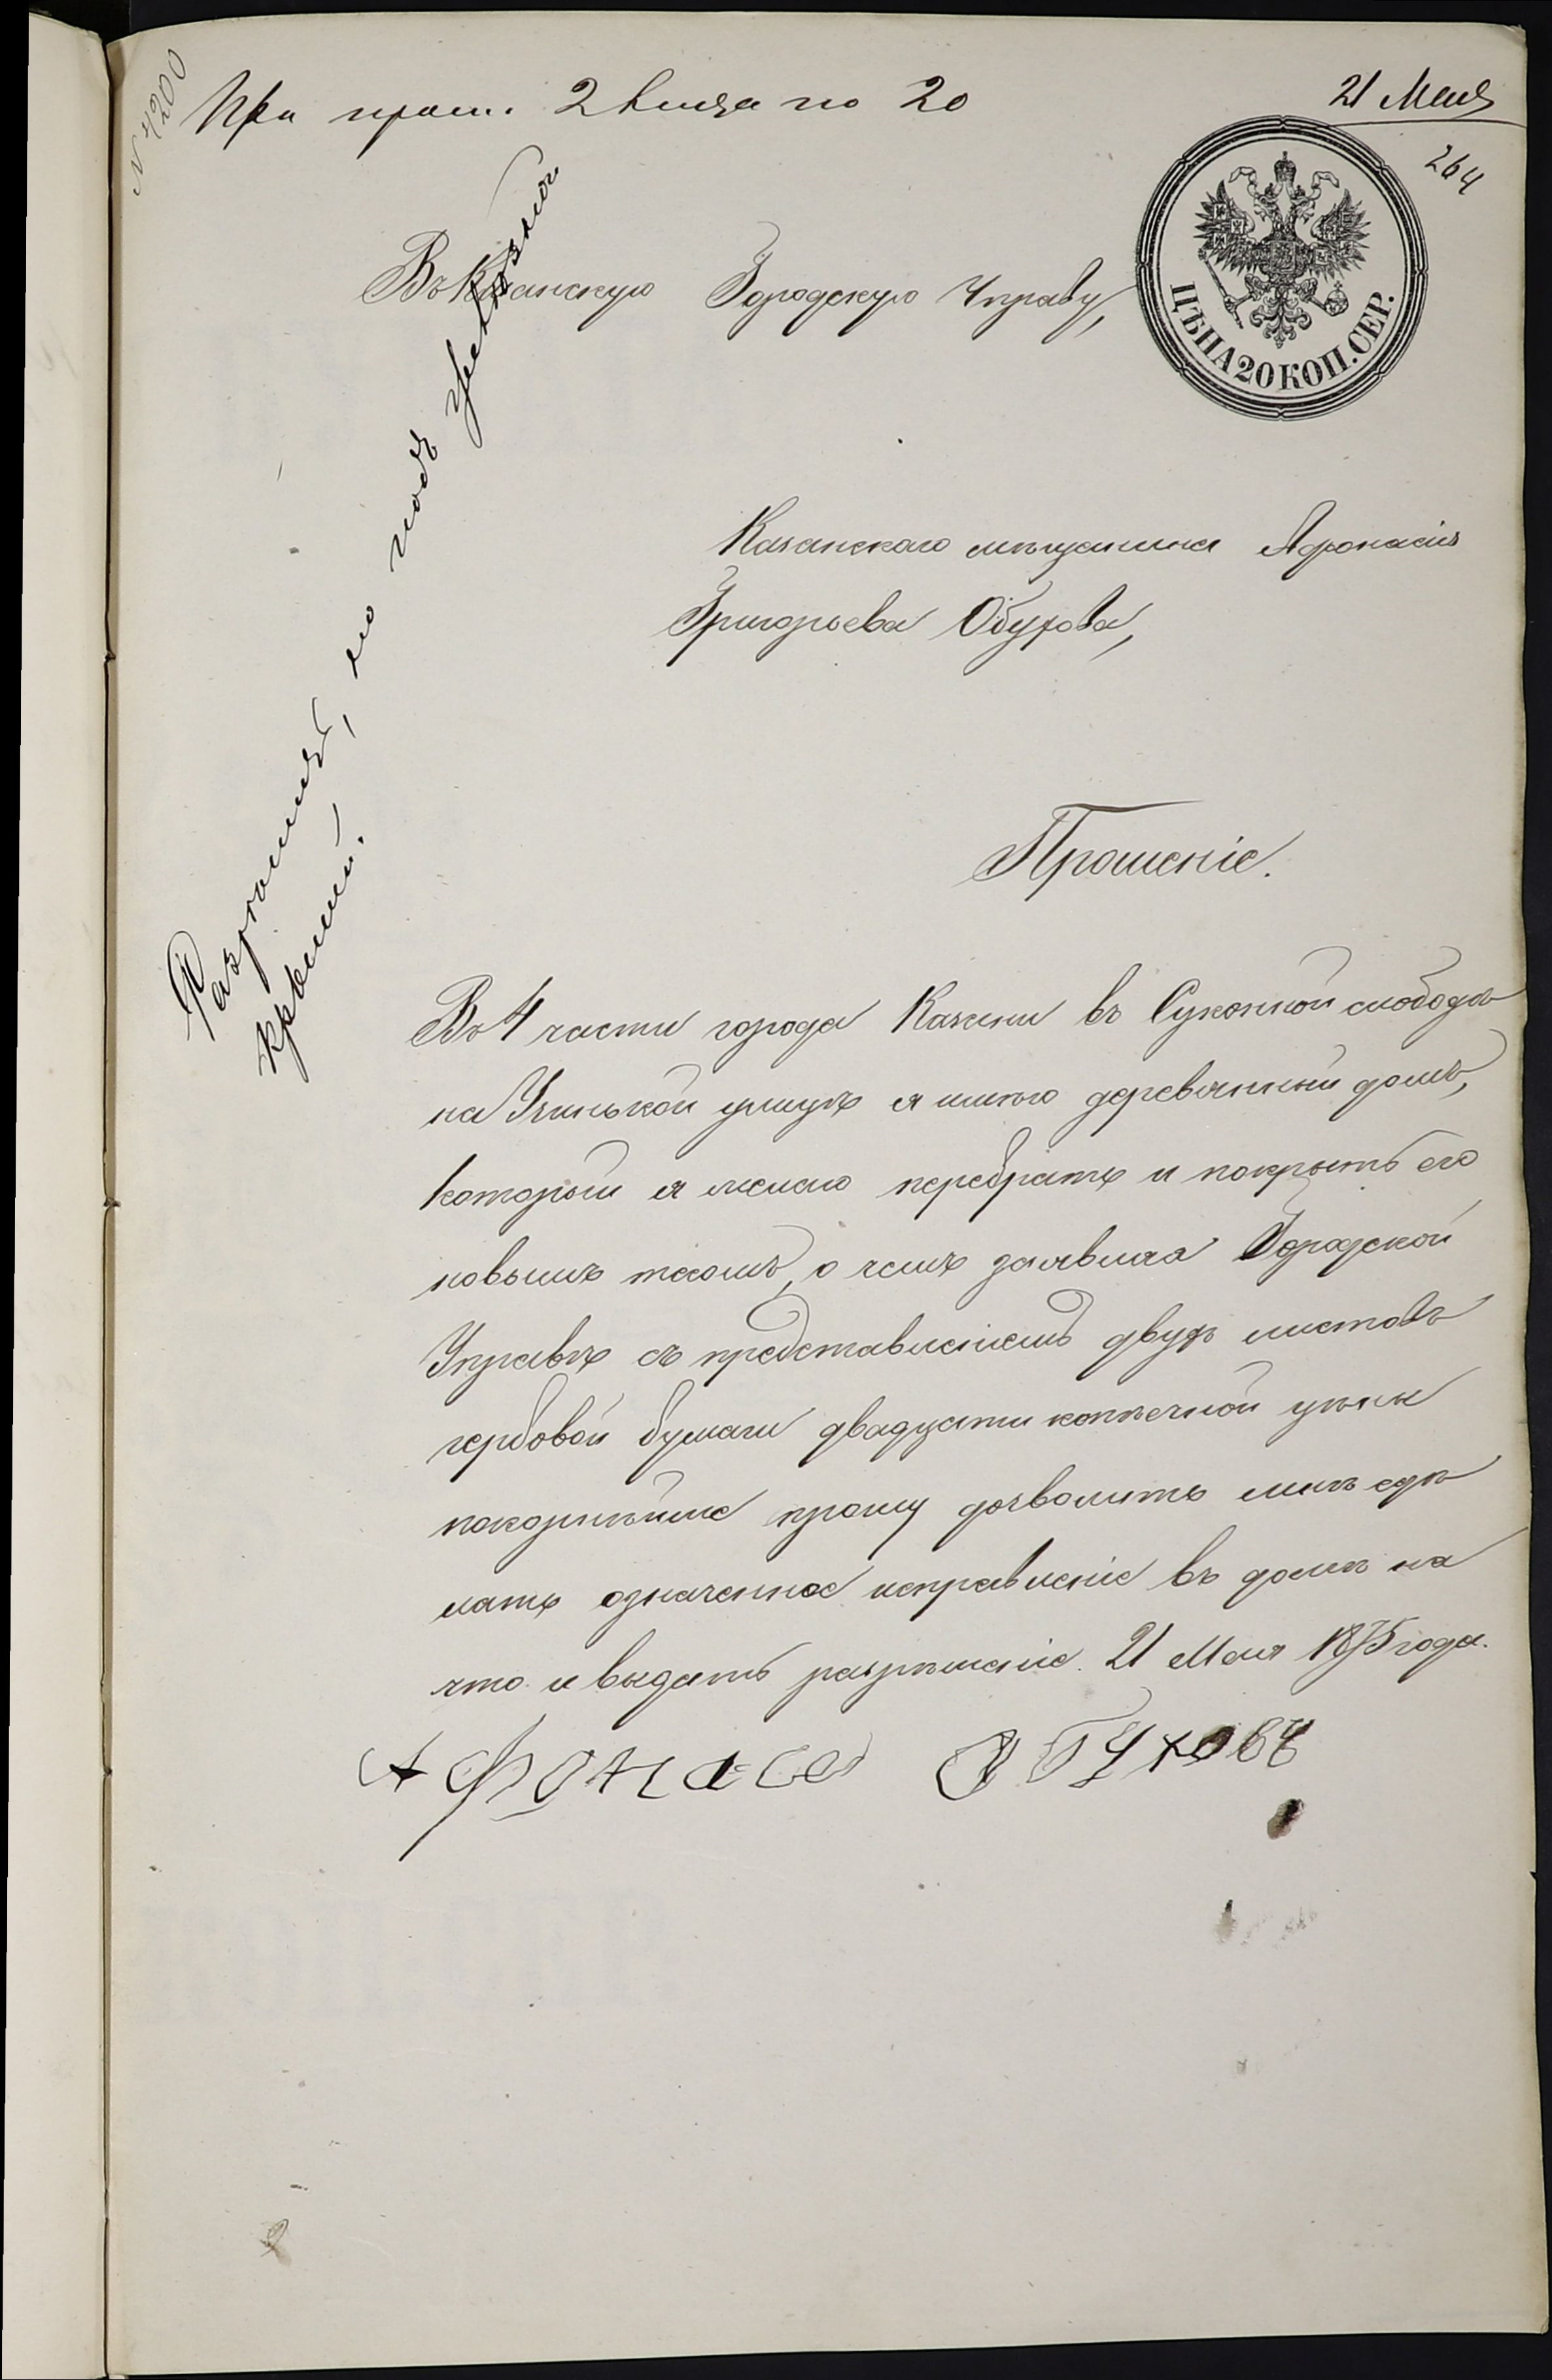 N 4200
При прош. 2 листа по 20
21 Мая
264
Въ Казанскую Городскую Управу,
ЦѢНА 20 КОП. СЕР.
Казанскаго мѣщанина Афонасія
Григорьева Обухова,
Прошеніе.
Разрѣшить, но подъ желѣзной
крышей.
Въ 4 части города Казани въ Суконной слободѣ
на улицѣ я имѣю деревянный домъ,
который я желаю перебрать и покрыть его
новымъ тёсомъ, о чемъ заявляя Городской
Управѣ съ представленіемъ двухъ листовъ
гербовой бумаги двадцати копѣечной цѣны
покорнѣйше прошу дозволить мнѣ сдѣ
лать означенное исправленіе въ домѣ на
что и выдать разрѣшеніе. 21 Мая 1875 года.
Афонасей Обуховъ